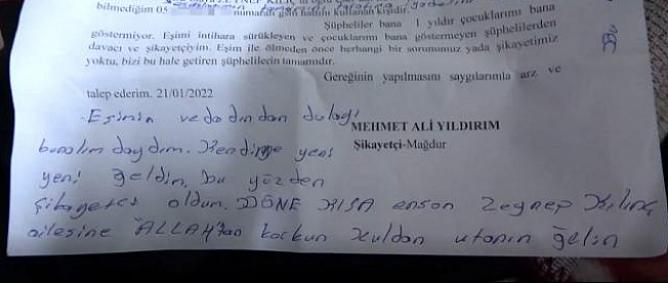 bilmediğim 05 numaralı gsm hattını kullanan kişidir.
Şüpheliler bana 1 yıldır çocuklarımı bana
göstermiyor. Eşimi intihara sürükleyen ve çocuklarımı bana göstermeyen şüphelilerden
davacı ve şikayetçiyim. Eşim ile ölmeden önce herhangi bir sorunumuz yada şikayetimiz
yoktu, bizi bu hale getiren şüphelilerin tamamıdır.
Gereğinin yapılmasını saygılarımla arz ve
talep ederim. 21/01/2022
MEHMET ALİ YILDIRIM
Şikayetçi-Mağdur
Eşimin vedadından dolayı
bunalımdaydım. Kendime yeni
yeni geldin. bu yüzden
şikayetçi oldum. DÖNE KISA enson Zeynep Kılınç
ailesine "ALLAH'tan korkun kuldan utanın gelin